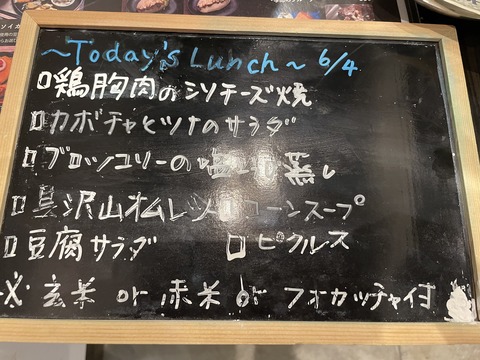 ~Today's Lunch~ 6/4
鶏胸肉のシソチーズ焼
カボチャとツナのサラダ
ブロッコリーの 蒸し
具沢山オムレツ コーンスープ
豆腐サラダ ピクルス
※玄米 or 赤米 or フォカッチャ付